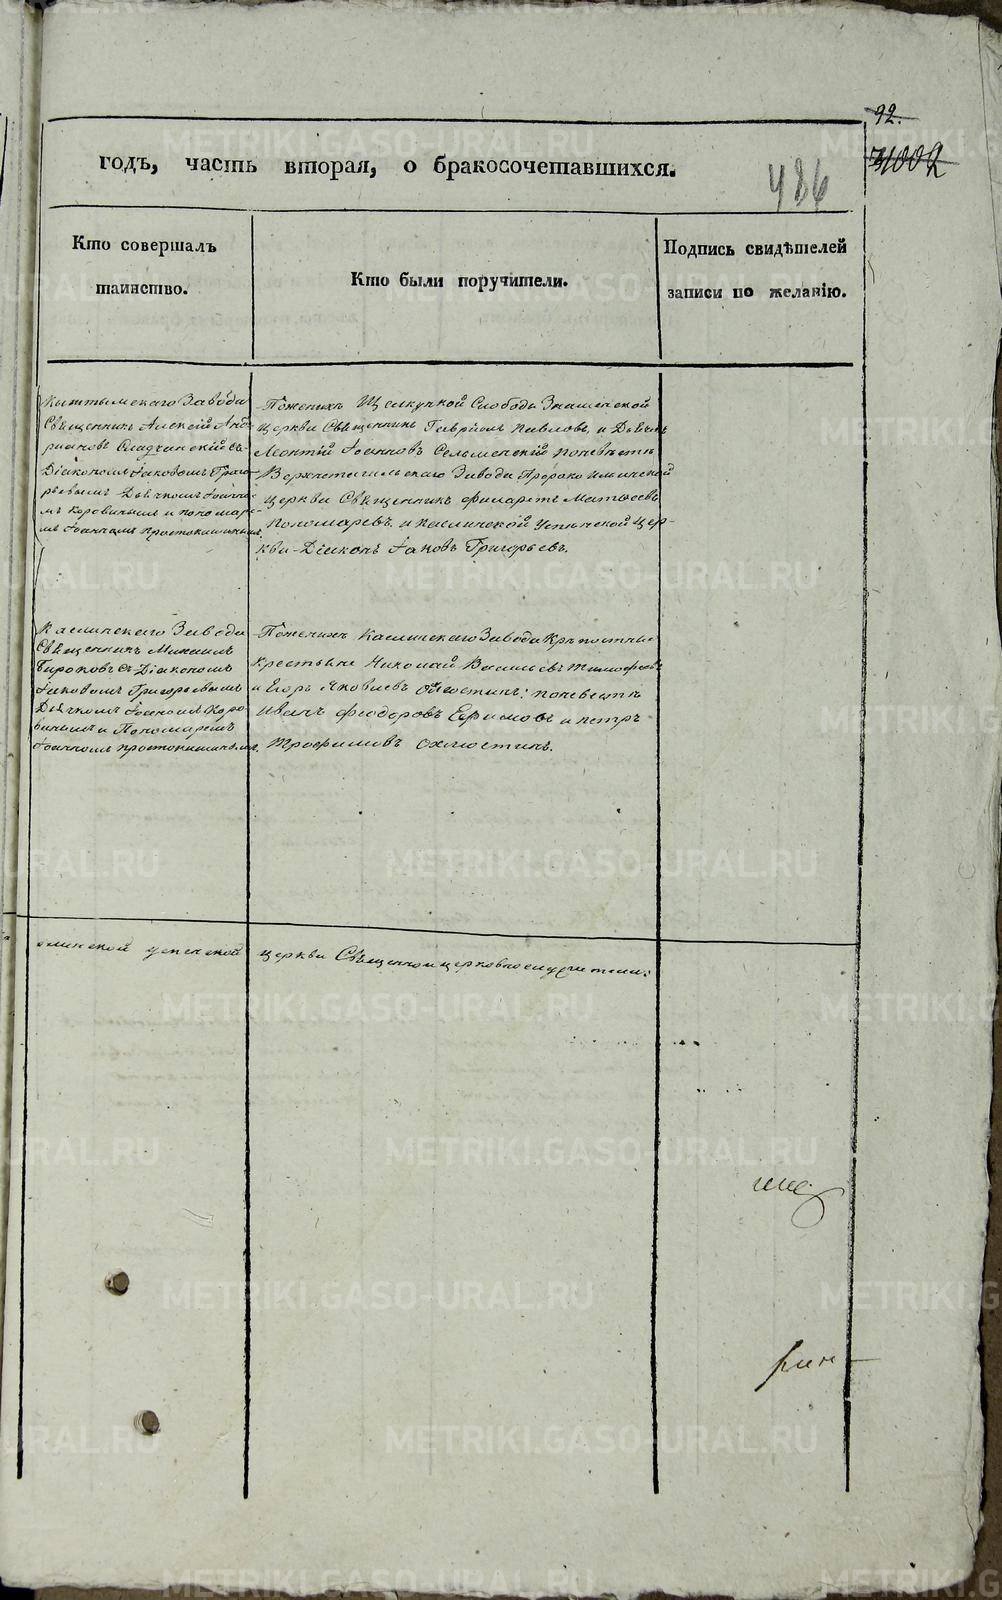 92.
31002
годъ, часть вторая, о бракосочетавшихся.
486
Кто совершалъ
таинство.
Кто были поручители.
Подпись свидѣтелей
записи по желанію.
Кыштымскаго Завода
Священникъ Алексѣй Анд
ріановъ Сладчинскій съ
Діакономъ Іаковомъ Григо
рьевымъ Дьячкомъ Іоанно
мъ Коровинымъ и пономаре
мъ Іоанномъ Простокишинымъ
Поженихѣ Щелкунской Слободы Знаменской
Церкви Священникъ Гавріилъ Павловъ, и Дьячекъ
Леонтій Іоанновъ Сельменскій поневѣстѣ
Верхнетагильскаго Завода Пророко Илинской
Церкви Священникъ Филаретъ Матѳеевъ
Пономаревъ, и Каслинской Успенской Цер-
кви Діаконъ Іаковъ Григорьевъ.
Каслинскаго Завода
Священникъ Михаилъ
Бирюковъ съ Діакономъ
Іаковомъ Григорьевымъ
Дьячкомъ Іоанномъ Коро
винымъ и Пономаремъ
Іоанномъ Простокишинымъ.
Поженихѣ Каслинскаго Завода Крѣпостные
крестьяне Николай Васильевъ Тимофеевъ
и Егоръ Яковлевъ Охлюстинъ; поневѣстѣ
Иванъ Феодоровъ Ефимовъ и Петръ
Трофимовъ Охлюстинъ.
слинской успенской церкви Священноицерковнослужители:
METRIKI.GASO-URAL.RU